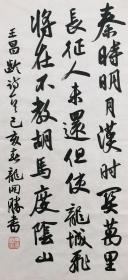 秦時明月漢時関萬里
長征人未還但使龍城飛
將在不教胡馬度陰山
王昌齡詩己亥春龍開勝書